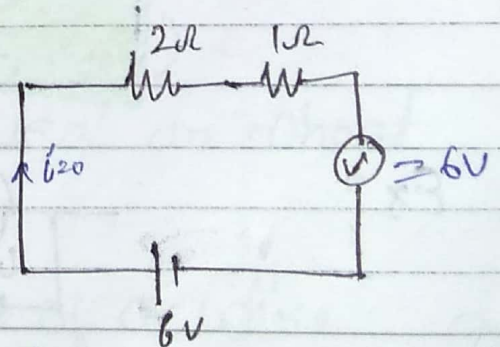 2Ω 1Ω
i=0
V = 6V
6V